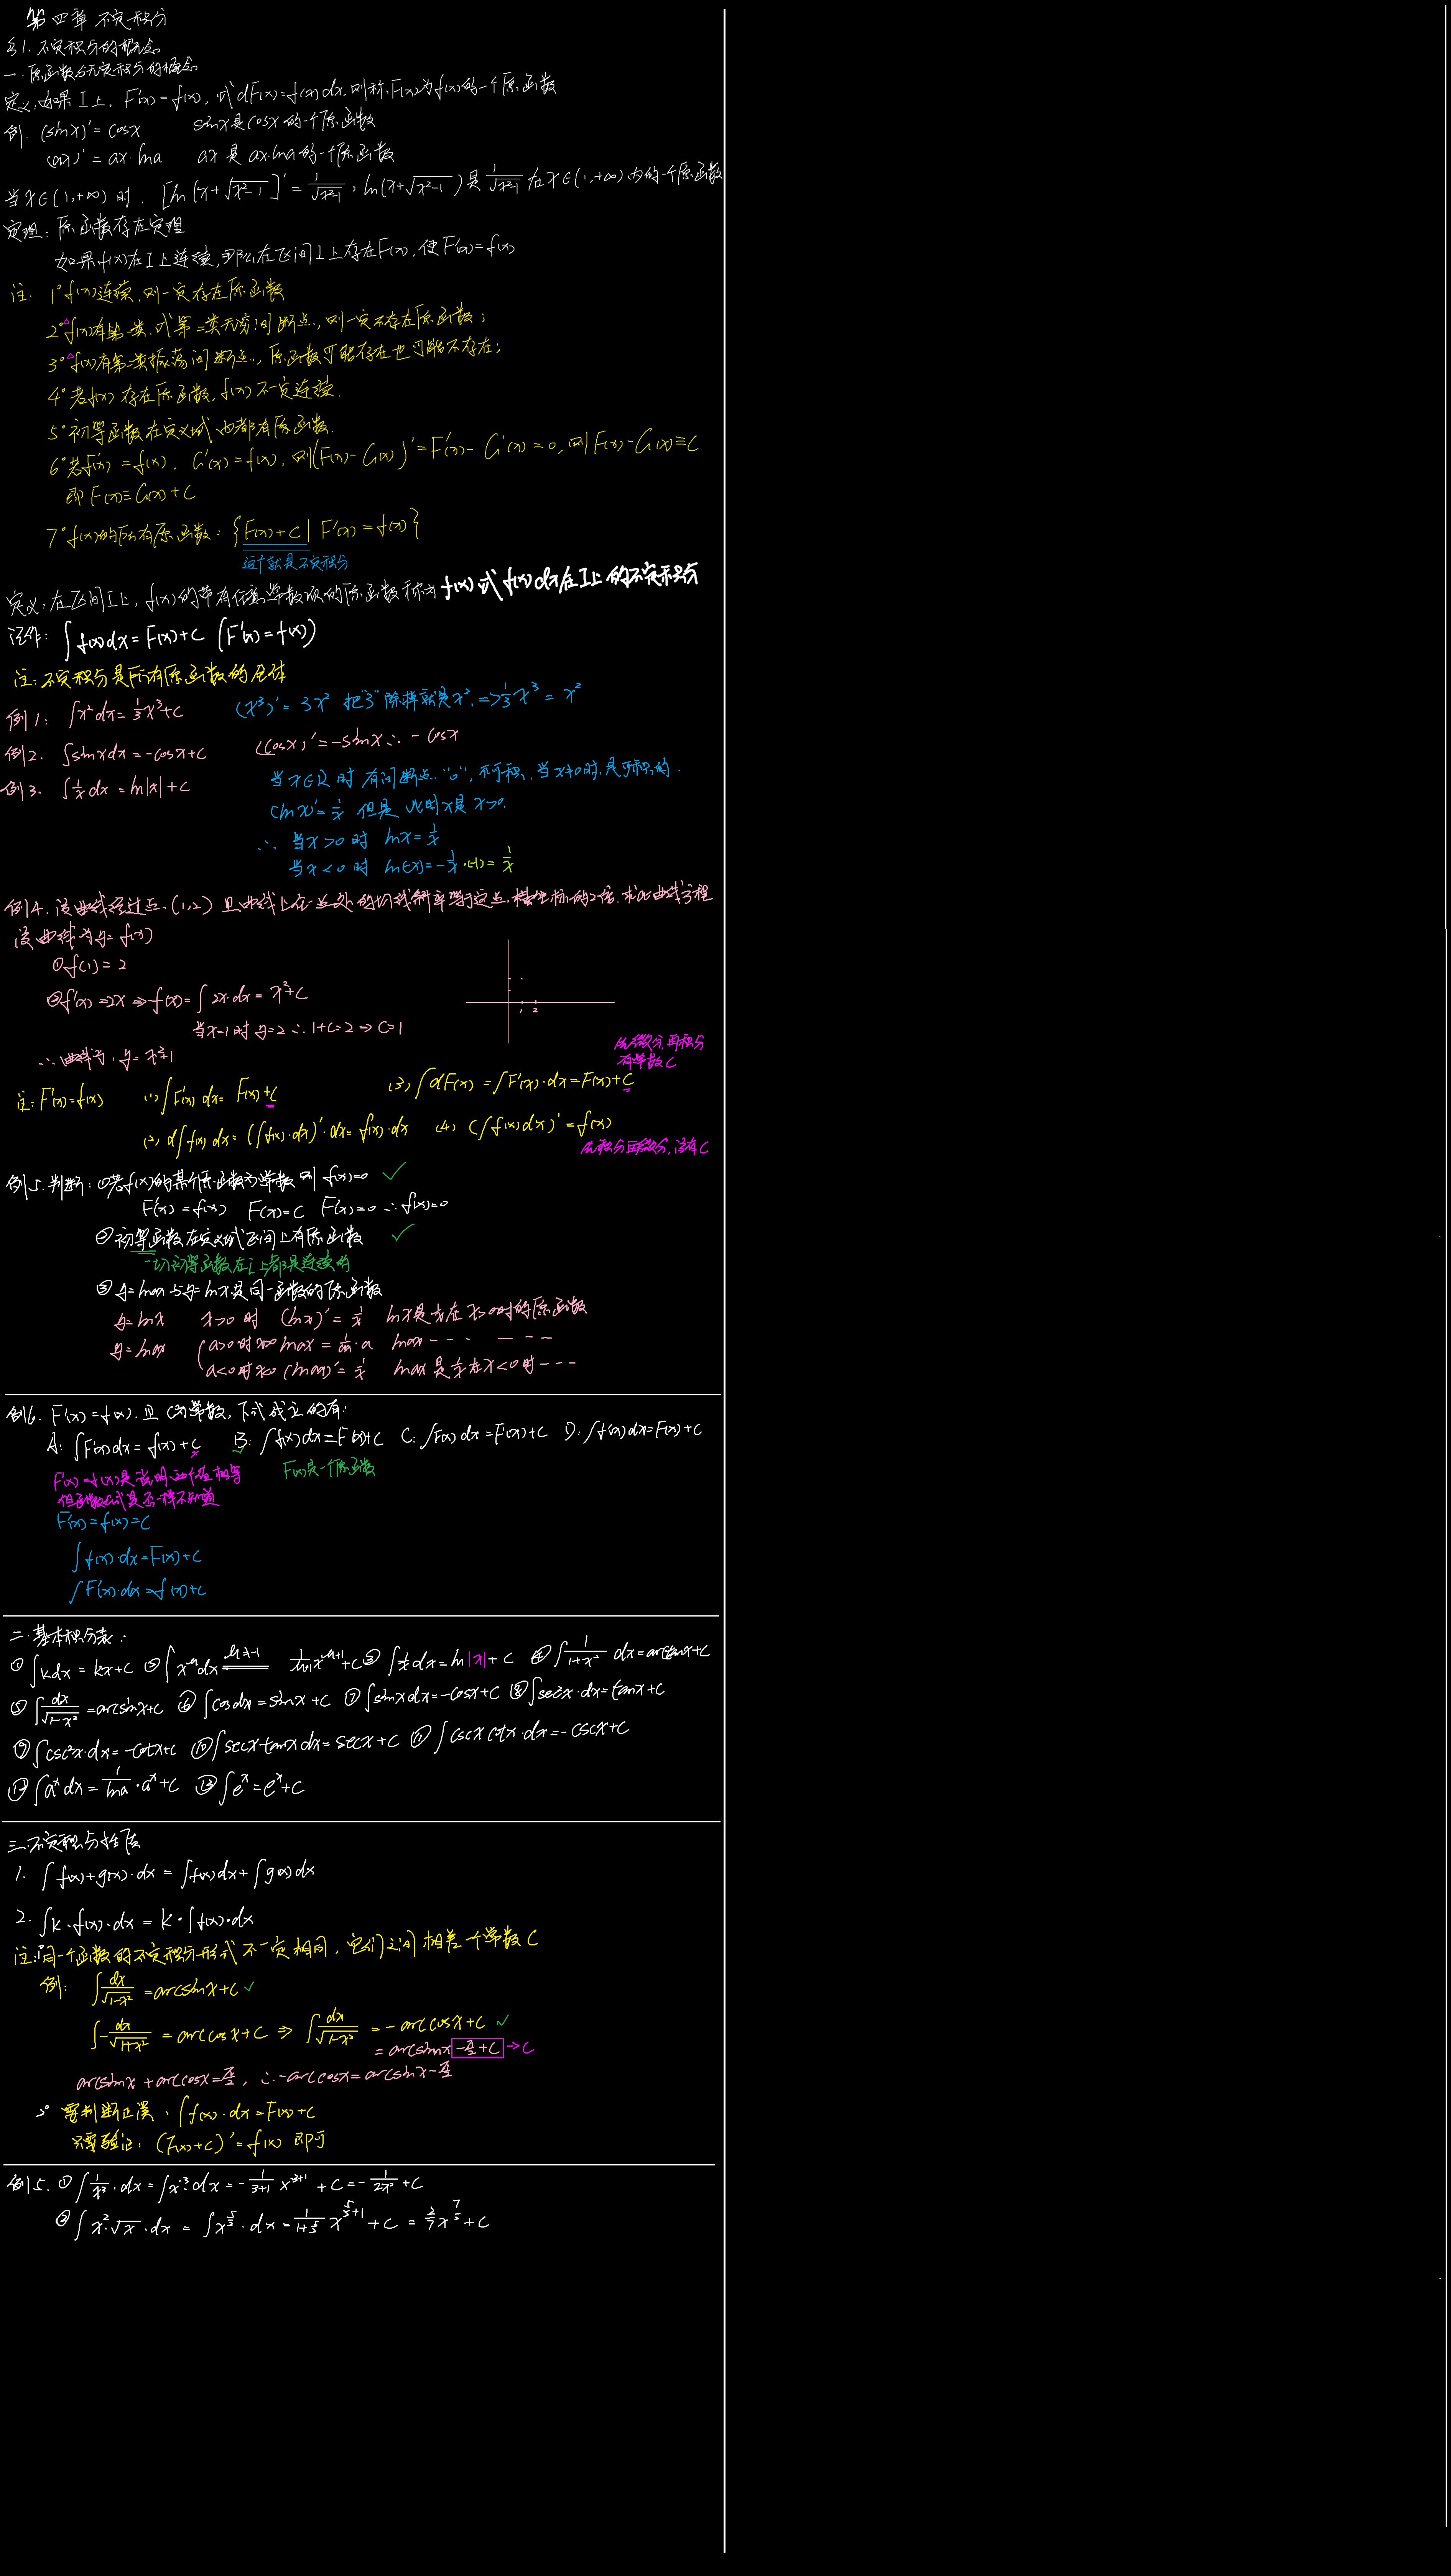 第四章 不定积分
§1. 不定积分的概念
一. 原函数与不定积分的概念
定义: 如果 I 上, F'(x)=f(x), 或 dF(x)=f(x)dx, 则称 F(x)为f(x)的一个原函数
例. (sinx)'=cosx  sinx是cosx的一个原函数
(ax)'=ax·lna  ax 是 ax·lna的一个原函数
当x∈(1,+∞) 时, [ln(x+√(x²-1))]'=1/√(x²-1), ln(x+√(x²-1))是 1/√(x²-1) 在x∈(1,+∞)内的一个原函数
定理: 原函数存在定理
如果f(x)在I上连续, 那么在区间I上存在F(x), 使F'(x)=f(x)
注: 1° f(x)连续, 则一定存在原函数
2°△ f(x)有第一类, 或第二类无穷间断点, 则一定不存在原函数;
3°△ f(x)有第二类振荡间断点, 原函数可能存在也可能不存在;
4° 若f(x)存在原函数, f(x)不一定连续.
5° 初等函数在定义域内都有原函数.
6° 若F'(x)=f(x), G'(x)=f(x), 则(F(x)-G(x))'=F'(x)-G'(x)=0, 则F(x)-G(x)≡C
即 F(x)≡G(x)+C
7° f(x)的所有原函数: {F(x)+C | F'(x)=f(x)}
这个就是不定积分
定义: 在区间I上, f(x)的带有任意常数项的原函数称为 f(x)或f(x)dx在I上的不定积分
记作: ∫f(x)dx=F(x)+C (F'(x)=f(x))
注: 不定积分是所有原函数的全体
例1: ∫x²dx=1/3x³+C  (x³)'=3x² 把"3"除掉就是x², =>1/3x³=x²
例2. ∫sinxdx=-cosx+C  (cosx)'=-sinx ∴ -cosx
例3. ∫1/x dx=ln|x|+C  当x∈R时 有间断点"0", 不可积, 当x≠0时, 是可积的.
(lnx)'=1/x 但是 此时x是 x>0.
∴ 当x>0 时 lnx=1/x
当x<0 时 ln(-x)=-1/x·(-1)=1/x
例4. 设曲线经过点(1,2) 且曲线上任一点处的切线斜率等于这点横坐标的2倍. 求此曲线方程
设曲线为y=f(x)
①f(1)=2
②f'(x)=2x ⇒ f(x)=∫2x·dx=x²+C
当x=1时y=2 ∴ 1+C=2 ⇒ C=1
1 2
∴ 曲线为: y=x²+1
先微分, 再积分
有常数C
注: F'(x)=f(x)  (1) ∫F'(x)dx=F(x)+C  (3) ∫dF(x)=∫F'(x)·dx=F(x)+C
(2) d∫f(x)dx=(∫f(x)·dx)'·dx=f(x)·dx  (4) (∫f(x)dx)'=f(x)
先积分再微分, 没有C
例5. 判断: ①若f(x)的某个原函数为常数 则 f(x)=0 ✓
F'(x)=f(x) F(x)=C F'(x)=0 ∴ f(x)=0
②初等函数在定义域区间上有原函数 ✓
一切初等函数在I上都是连续的
③y=lnax与y=lnx是同一函数的原函数
y=lnx  x>0 时 (lnx)'=1/x lnx是1/x在x>0时的原函数
y=lnax { a>0时x>0 lnax=1/ax·a lnax - - - - - -
a<0时x<0 (lnax)'=1/x lnax是1/x在x<0时 - - -
例6. F'(x)=f(x), 且C为常数, 下式成立的有:
A: ∫F'(x)dx=f(x)+C × B: ∫f(x)dx=F(x)+C ✓ C: ∫F(x)dx=F(x)+C D: ∫f'(x)dx=F(x)+C
F'(x)=f(x)是说明这个值相等  F(x)是一个原函数
但函数形式是否一样不知道
F'(x)=f(x)=C
∫f(x)·dx=F(x)+C
∫F'(x)·dx=f(x)+C
二. 基本积分表:
① ∫kdx=kx+C ② ∫x^μdx μ≠-1 1/(μ+1)x^(μ+1)+C ③ ∫1/x dx=ln|x|+C ④ ∫1/(1+x²) dx=arctanx+C
⑤ ∫dx/√(1-x²)=arcsinx+C ⑥ ∫cosdx=sinx+C ⑦ ∫sinxdx=-cosx+C ⑧ ∫sec²x·dx=tanx+C
⑨ ∫csc²x·dx=-cotx+C ⑩ ∫secxtanxdx=secx+C ⑪ ∫cscxcotx·dx=-cscx+C
⑫ ∫a^x dx=1/lna·a^x+C ⑬ ∫e^x=e^x+C
三. 不定积分性质
1. ∫f(x)+g(x)·dx=∫f(x)dx+∫g(x)dx
2. ∫k·f(x)·dx=k·∫f(x)·dx
注: 1°同一个函数的不定积分形式不一定相同, 它们之间相差一个常数C
例: ∫dx/√(1-x²)=arcsinx+C ✓
∫-dx/√(1-x²)=arccosx+C ⇒ ∫dx/√(1-x²)=-arccosx+C ✓
=arcsinx-π/2+C → C
arcsinx+arccosx=π/2, ∴ -arccosx=arcsinx-π/2
2° 要判断正误: ∫f(x)·dx=F(x)+C
只需验证: (F(x)+C)'=f(x) 即可
例5. ① ∫1/x³·dx=∫x^-3dx=-1/(3+1) x^(-3+1)+C=-1/2x²+C
② ∫x²·√x·dx=∫x^(5/2)·dx=1/(1+5/2) x^(5/2+1)+C=2/7x^(7/2)+C